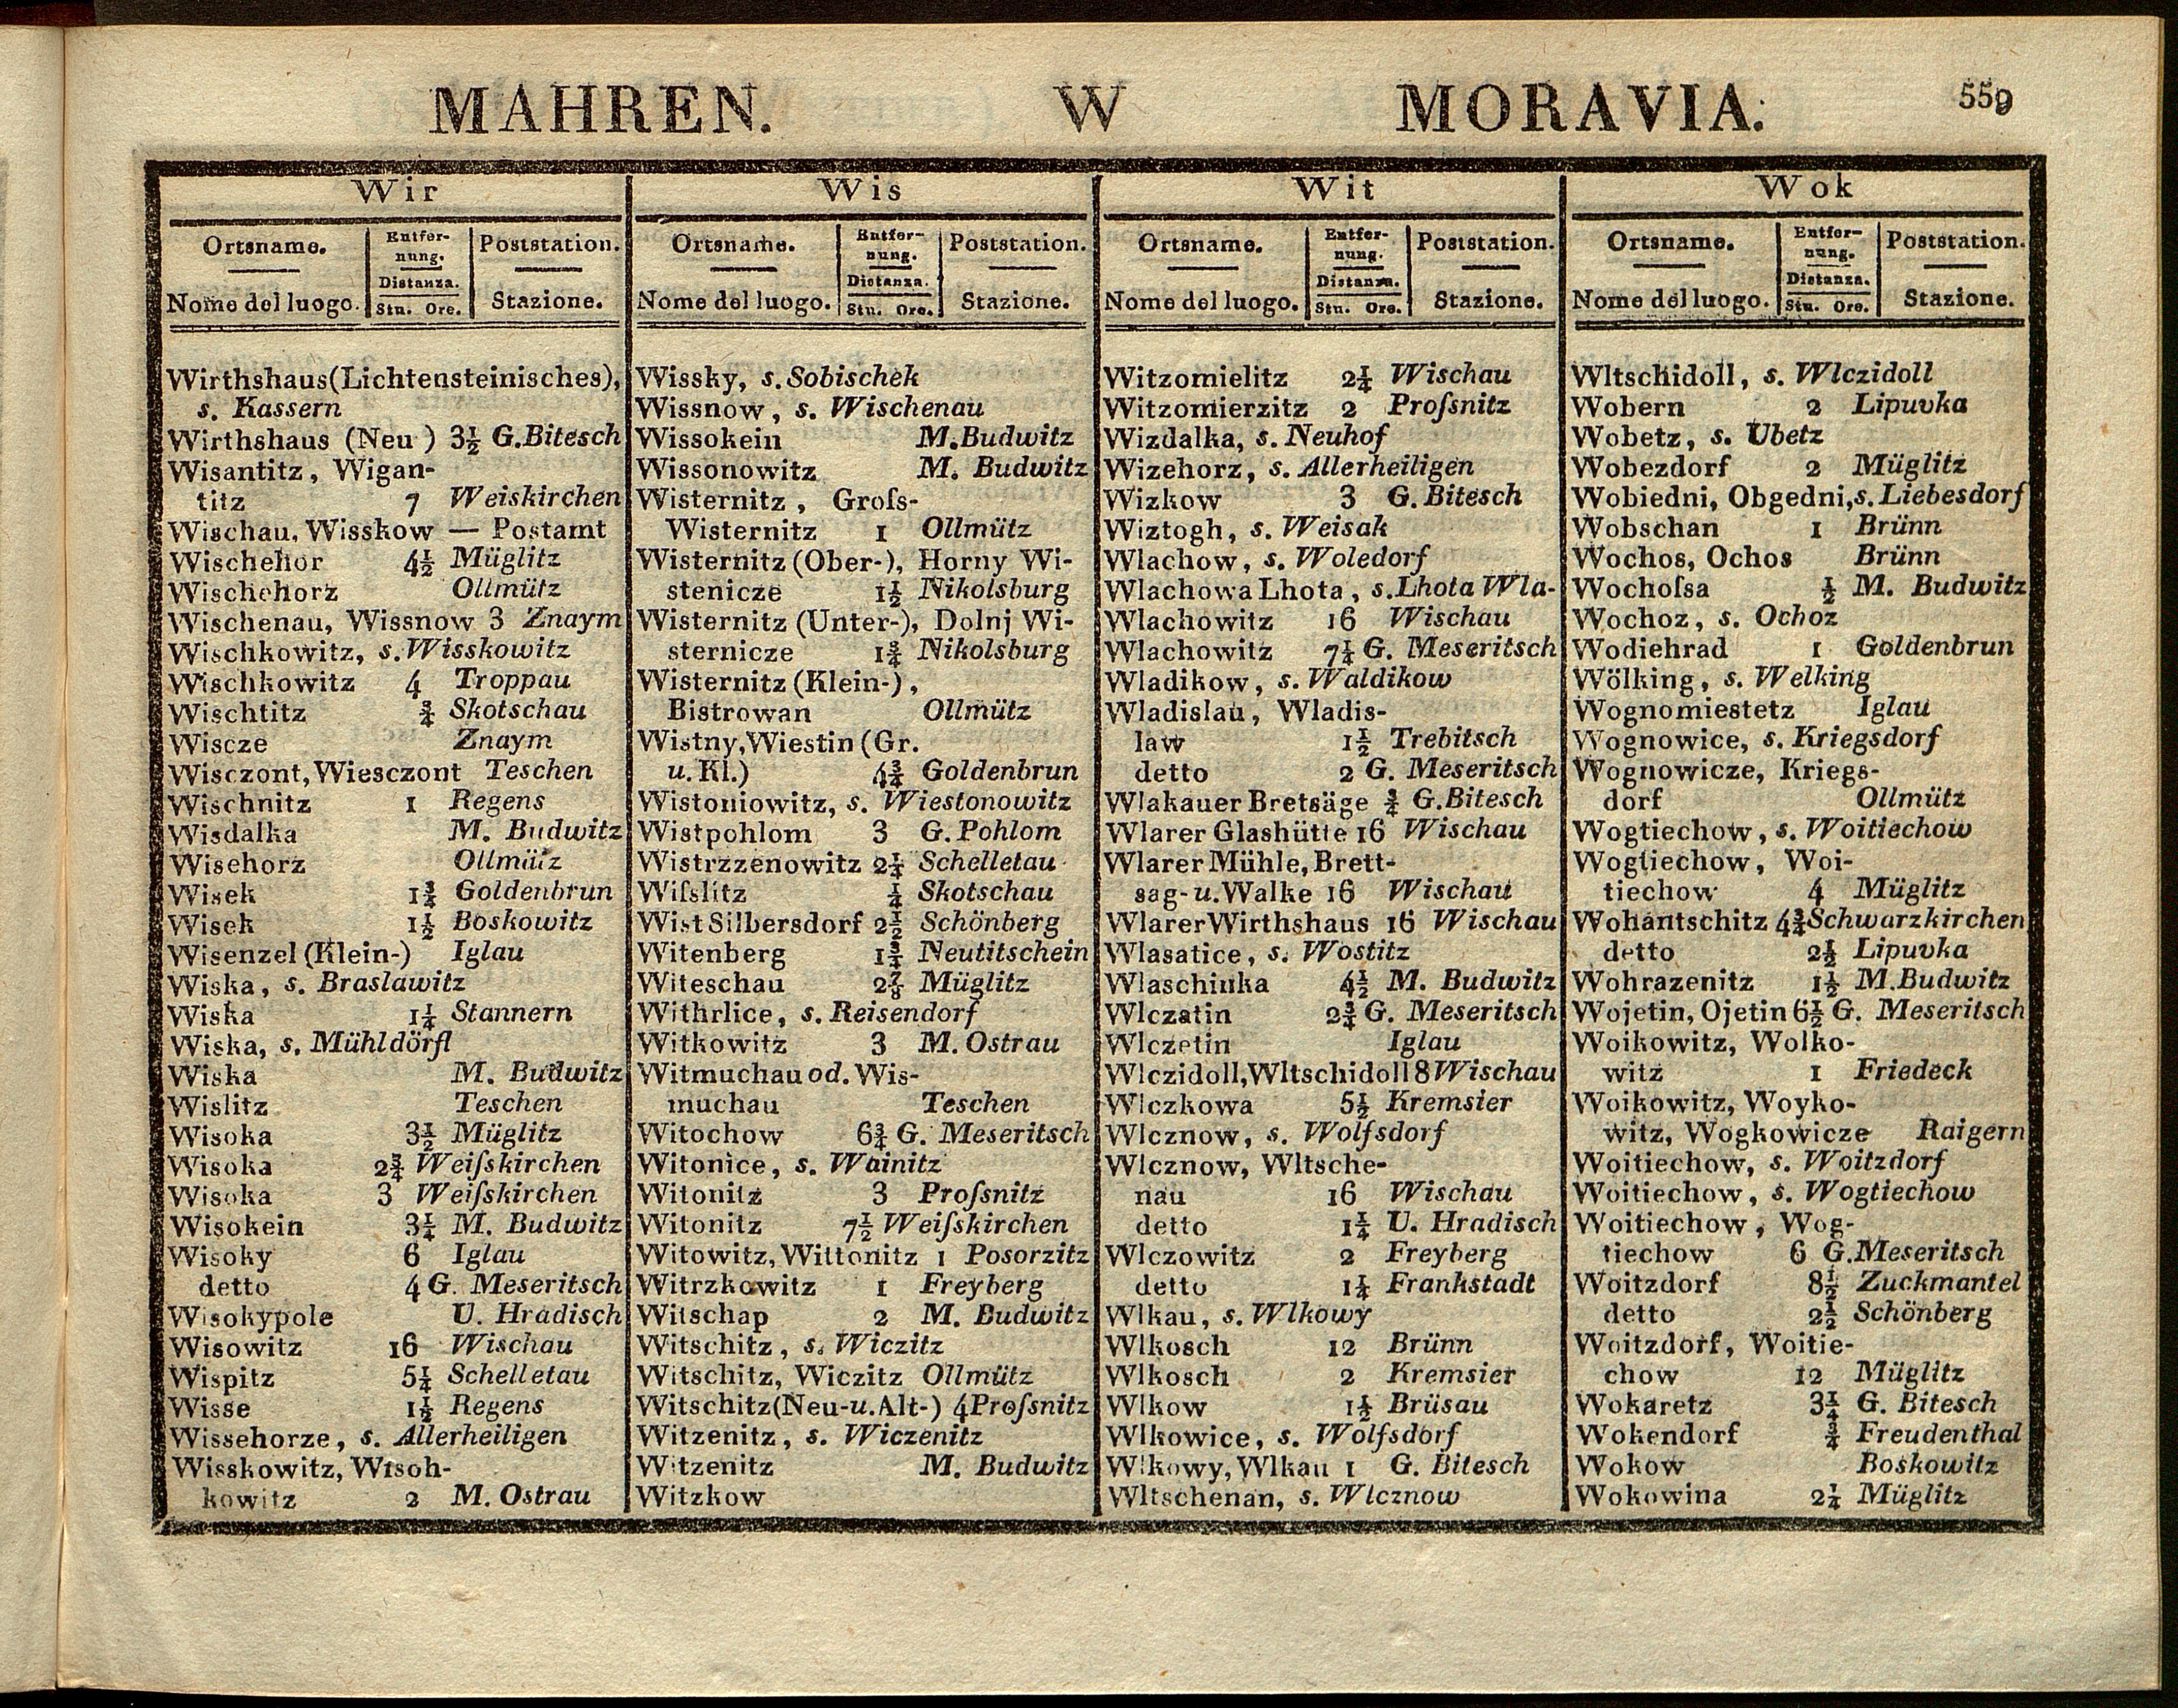 MAHREN. W MORAVIA. 559
Wir
Ortsname. Entfer- Poststation.
nung.
Distanza.
Nome del luogo. Stu. Ore. Stazione.
Wirthshaus(Lichtensteinisches),
s. Kassern
Wirthshaus (Neu) 3½ G.Bitesch
Wisantitz, Wigan-
titz 7 Weiskirchen
Wischau, Wisskow — Postamt
Wischehor 4½ Müglitz
Wischehorz Ollmütz
Wischenau, Wissnow 3 Znaym
Wischkowitz, s. Wisskowitz
Wischkowitz 4 Troppau
Wischtitz ¾ Skotschau
Wiscze Znaym
Wisczont, Wiesczont Teschen
Wischnitz 1 Regens
Wisdalka M. Budwitz
Wisehorz Ollmütz
Wisek 1¾ Goldenbrun
Wisek 1½ Boskowitz
Wisenzel (Klein-) Iglau
Wiska, s. Braslawitz
Wiska 1¼ Stannern
Wiska, s. Mühldörfl
Wiska M. Budwitz
Wislitz Teschen
Wisoka 3½ Müglitz
Wisoka 2¾ Weiſskirchen
Wisoka 3 Weiſskirchen
Wisokein 3¼ M. Budwitz
Wisoky 6 Iglau
detto 4 G. Meseritsch
Wisokypole U. Hradisch
Wisowitz 16 Wischau
Wispitz 5¼ Schelletau
Wisse 1½ Regens
Wissehorze, s. Allerheiligen
Wisskowitz, Wisoh-
kowitz 2 M. Ostrau
Wis
Ortsname. Entfer- Poststation.
nung.
Distanza.
Nome del luogo. Stu. Ore. Stazione.
Wissky, s. Sobischek
Wissnow, s. Wischenau
Wissokein M. Budwitz
Wissonowitz M. Budwitz
Wisternitz, Groſs-
Wisternitz 1 Ollmütz
Wisternitz (Ober-), Horny Wi-
stenicze 1½ Nikolsburg
Wisternitz (Unter-), Dolnj Wi-
sternicze 1¾ Nikolsburg
Wisternitz (Klein-),
Bistrowan Ollmütz
Wistny, Wiestin (Gr.
u. Kl.) 4¾ Goldenbrun
Wistoniowitz, s. Wiestonowitz
Wistpohlom 3 G. Pohlom
Wistrzzenowitz 2¼ Schelletau
Wiſslitz ¼ Skotschau
Wist Silbersdorf 2½ Schönberg
Witenberg 1¾ Neutitschein
Witeschau 2⅞ Müglitz
Withrlice, s. Reisendorf
Witkowitz 3 M. Ostrau
Witmuchau od. Wis-
muchau Teschen
Witochow 6¾ G. Meseritsch
Witonice, s. Wainitz
Witonitz 3 Proſsnitz
Witonitz 7½ Weiſskirchen
Witowitz, Wittonitz 1 Posorzitz
Witrzkowitz 1 Freyberg
Witschap 2 M. Budwitz
Witschitz, s. Wiczitz
Witschitz, Wiczitz Ollmütz
Witschitz(Neu-u. Alt-) 4 Proſsnitz
Witzenitz, s. Wiczenitz
Witzenitz M. Budwitz
Witzkow
Wit
Ortsname. Entfer- Poststation.
nung.
Distanza.
Nome del luogo. Stu. Ore. Stazione.
Witzomielitz 2¼ Wischau
Witzomierzitz 2 Proſsnitz
Wizdalka, s. Neuhof
Wizehorz, s. Allerheiligen
Wizkow 3 G. Bitesch
Wiztogh, s. Weisak
Wlachow, s. Woledorf
Wlachowa Lhota, s. Lhota Wla-
Wlachowitz 16 Wischau
Wlachowitz 7¼ G. Meseritsch
Wladikow, s. Waldikow
Wladislau, Wladis-
law 1½ Trebitsch
detto 2 G. Meseritsch
Wlakauer Bretsäge ¾ G. Bitesch
Wlarer Glashütte 16 Wischau
Wlarer Mühle, Brett-
sag- u. Walke 16 Wischau
Wlarer Wirthshaus 16 Wischau
Wlasatice, s. Wostitz
Wlaschinka 4½ M. Budwitz
Wlczatin 2¾ G. Meseritsch
Wlczetin Iglau
Wlczidoll, Wltschidoll 8 Wischau
Wlczkowa 5½ Kremsier
Wlcznow, s. Wolfsdorf
Wlcznow, Wltsche-
nau 16 Wischau
detto 1¼ U. Hradisch
Wlczowitz 2 Freyberg
detto 1¼ Frankstadt
Wlkau, s. Wlkowy
Wlkosch 12 Brünn
Wlkosch 2 Kremsier
Wlkow 1½ Brüsau
Wlkowice, s. Wolfsdorf
Wlkowy, Wlkau 1 G. Bitesch
Wltschenan, s. Wlcznow
Wok
Ortsname. Entfer- Poststation.
nung.
Distanza.
Nome del luogo. Stu. Ore. Stazione.
Wltschidoll, s. Wlczidoll
Wobern 2 Lipuvka
Wobetz, s. Ubetz
Wobezdorf 2 Müglitz
Wobiedni, Obgedni, s. Liebesdorf
Wobschan 1 Brünn
Wochos, Ochos Brünn
Wochoſsa ½ M. Budwitz
Wochoz, s. Ochoz
Wodiehrad 1 Goldenbrun
Wölking, s. Welking
Wognomiestetz Iglau
Wognowice, s. Kriegsdorf
Wognowicze, Kriegs-
dorf Ollmütz
Wogtiechow, s. Woitiechow
Wogtiechow, Woi-
tiechow 4 Müglitz
Wohantschitz 4¾ Schwarzkirchen
detto 2½ Lipuvka
Wohrazenitz 1½ M. Budwitz
Wojetin, Ojetin 6½ G. Meseritsch
Woikowitz, Wolko-
witz 1 Friedeck
Woikowitz, Woyko-
witz, Wogkowicze Raigern
Woitiechow, s. Woitzdorf
Woitiechow, s. Wogtiechow
Woitiechow, Wog-
tiechow 6 G. Meseritsch
Woitzdorf 8½ Zuckmantel
detto 2½ Schönberg
Woitzdorf, Woitie-
chow 12 Müglitz
Wokaretz 3¼ G. Bitesch
Wokendorf ¾ Freudenthal
Wokow Boskowitz
Wokowina 2¼ Müglitz